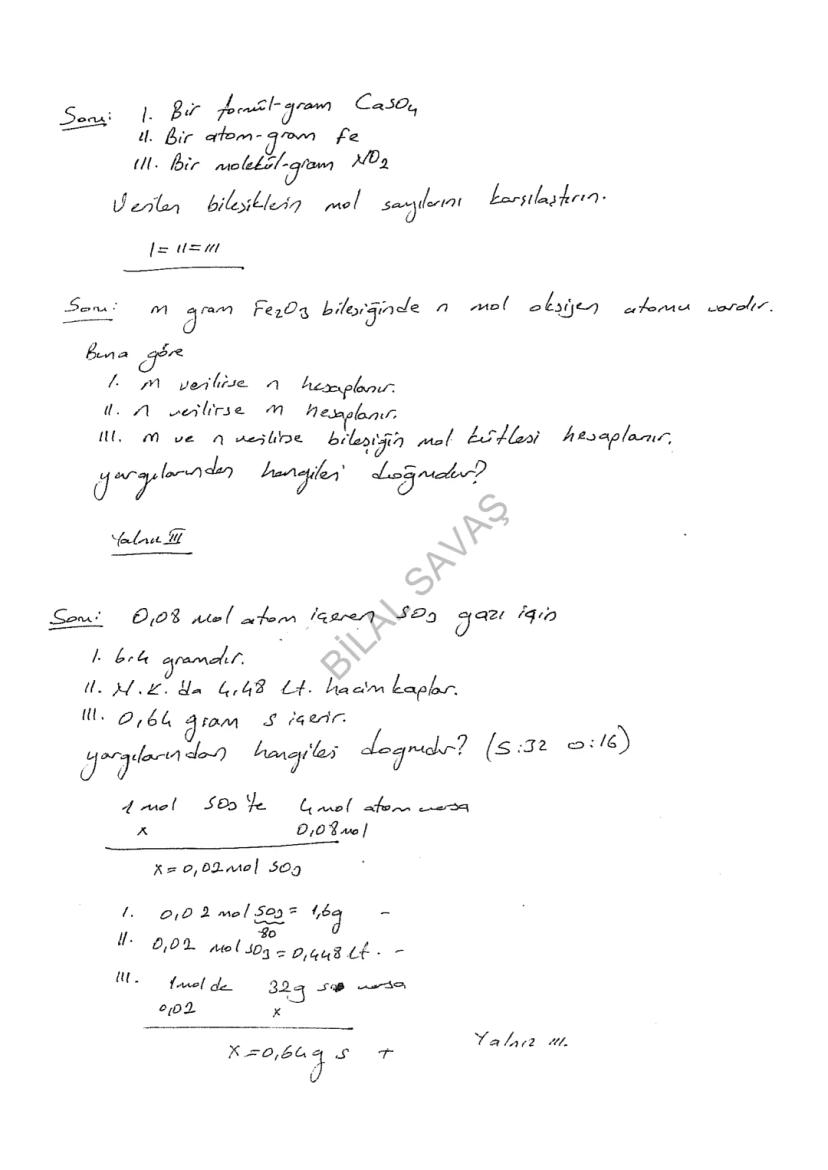 Soru: I. Bir formül-gram CaSO4
II. Bir atom-gram Fe
III. Bir molekül-gram NO2
Verilen bileşiklerin mol sayılarını karşılaştırın.
I = II = III
Soru: m gram Fe2O3 bileşiğinde n mol oksijen atomu vardır.
Buna göre
I. m verilirse n hesaplanır.
II. n verilirse m hesaplanır.
III. m ve n verilirse bileşiğin mol kütlesi hesaplanır.
yargılarından hangileri doğrudur?
Yalnız III
BİLAL SAVAŞ
Soru: 0,08 mol atom içeren SO3 gazı için
I. 6.4 gramdır.
II. N.K.'da 4,48 Lt. hacim kaplar.
III. 0,64 gram S içerir.
yargılarından hangileri doğrudur? (S:32 O:16)
1 mol SO3 'te 4 mol atom varsa
x 0,08 mol
x = 0,02 mol SO3
I. 0,02 mol SO3 = 1,6g -
80
II. 0,02 mol SO3 = 0,448 Lt. -
III. 1 mol de 32g S varsa
0,02 x
x = 0,64 g S +
Yalnız III.